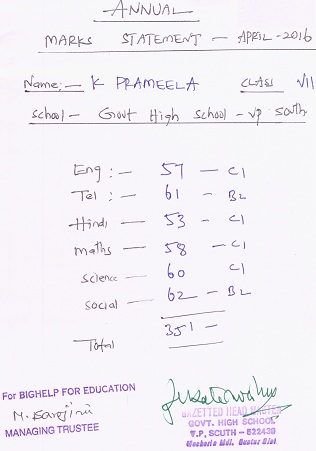 ANNUAL
MARKS STATEMENT - APRIL-2016
Name:- K PRAMEELA CLASS VII
School- Govt High School - VP South
Eng :- 57 - C1
Tel :- 61 - B2
Hindi - 53 - C1
Maths - 58 - C1
Science - 60 C1
Social - 62 - B2
Total 351 -
For BIGHELP FOR EDUCATION
N. Sarojini
MANAGING TRUSTEE
GAZETTED HEAD MASTER
GOVT. HIGH SCHOOL
V.P. SOUTH - 522439
Mdl. Guntur Dist